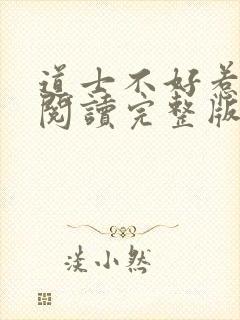 道士不好惹
閱讀完整版
淡小然